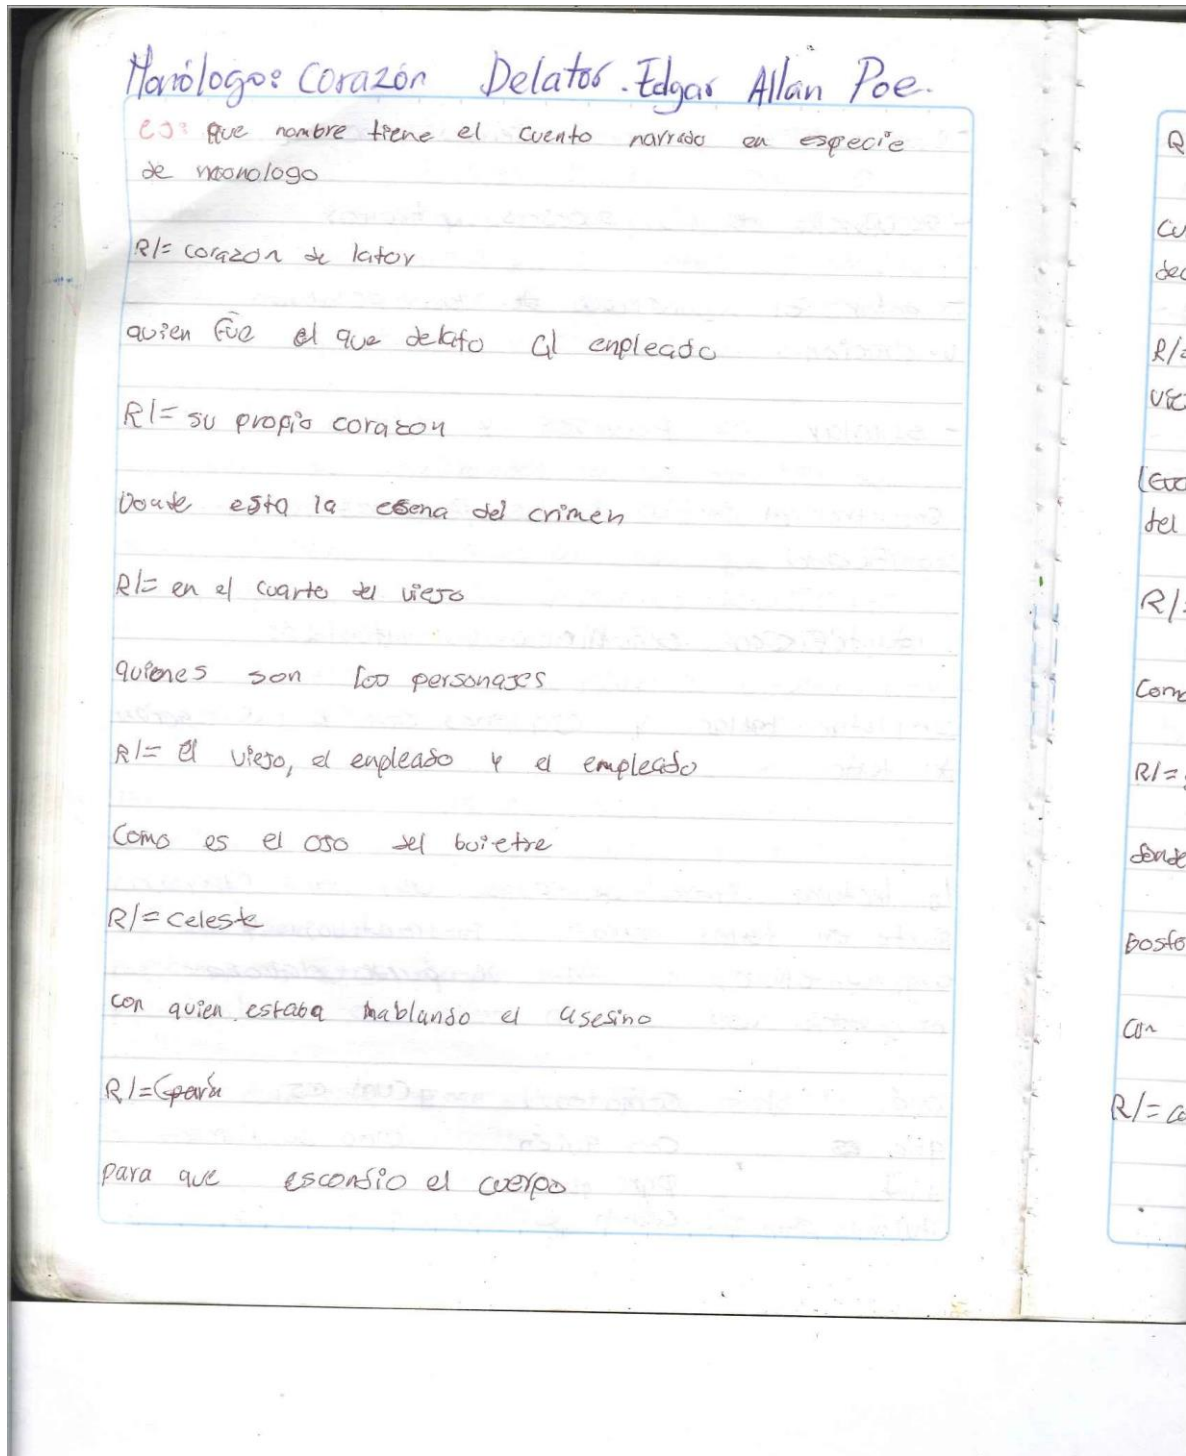 Monólogo: Corazón Delator. Edgar Allan Poe.
ej: que nombre tiene el cuento narrado en especie
de monologo
R/= corazon de lator
quien fue el que delato al enpleado
R/= su propio corazon
Donde esta la esena del crimen
R/= en el cuarto del viejo
quienes son los personajes
R/= el viejo, el enpleado y el empleado
Como es el ojo del buietre
R/= celeste
con quien estaba hablando el asesino
R/=
para que escondio el cuerpo
R/=
R/=
del
R/=
R/=
donde
con
R/=